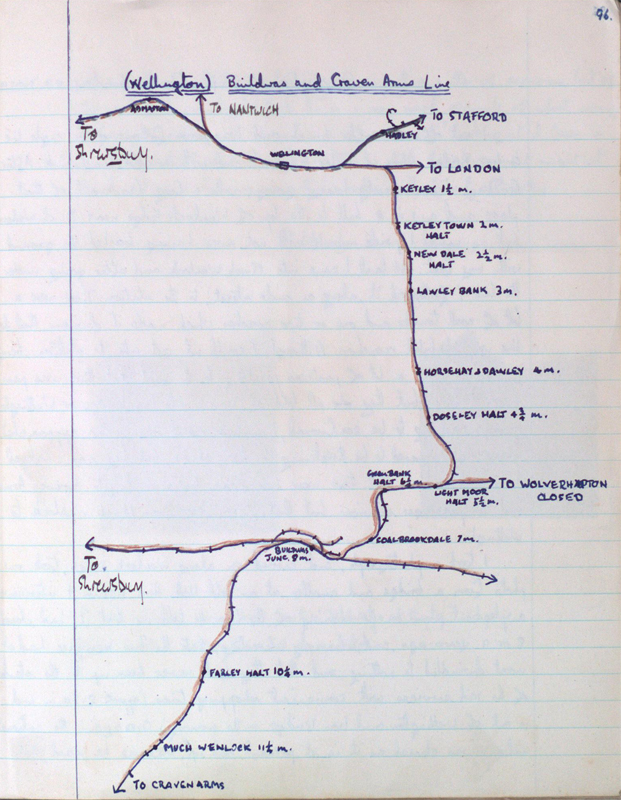 96.
(Wellington) Buildwas and Craven Arms Line
ADMASTON
TO NANTWICH
TO STAFFORD
HADLEY
To
Shrewsbury.
WELLINGTON
TO LONDON
KETLEY 1½ m.
KETLEY TOWN 2 m.
HALT
NEW DALE 2½ m.
HALT
LAWLEY BANK 3 m.
HORSEHAY & DAWLEY 4 m.
DOSELEY HALT 4¾ m.
GREENBANK
HALT 6½ m.
LIGHT MOOR
HALT 5½ m.
TO WOLVERHAMPTON
CLOSED
COALBROOKDALE 7 m.
BUILDWAS
JUNC. 8 m.
To.
Shrewsbury.
FARLEY HALT 10¼ m.
MUCH WENLOCK 11¼ m.
TO CRAVEN ARMS